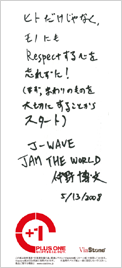 ヒトだけじゃなく、
モノにも
Respectする心を
忘れずに！
（まず、まわりのものを
大切にすることから
スタート）
J-WAVE
JAM THE WORLD
5/13/2008
+1
PLUS ONE
ViaStone